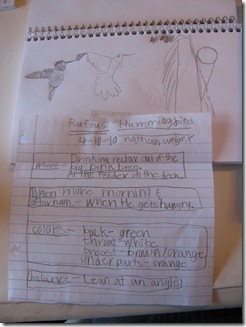 Rufous Hummingbird
4-10-10 nathan
where - Drinking nectar out of the
big pink tree.
At the feeder on the deck.
When - more morning &
afternoon - when He gets hungry.
colors - back - green
throat - white
breast - brown/orange
under parts - orange
balance - Lean at an angle